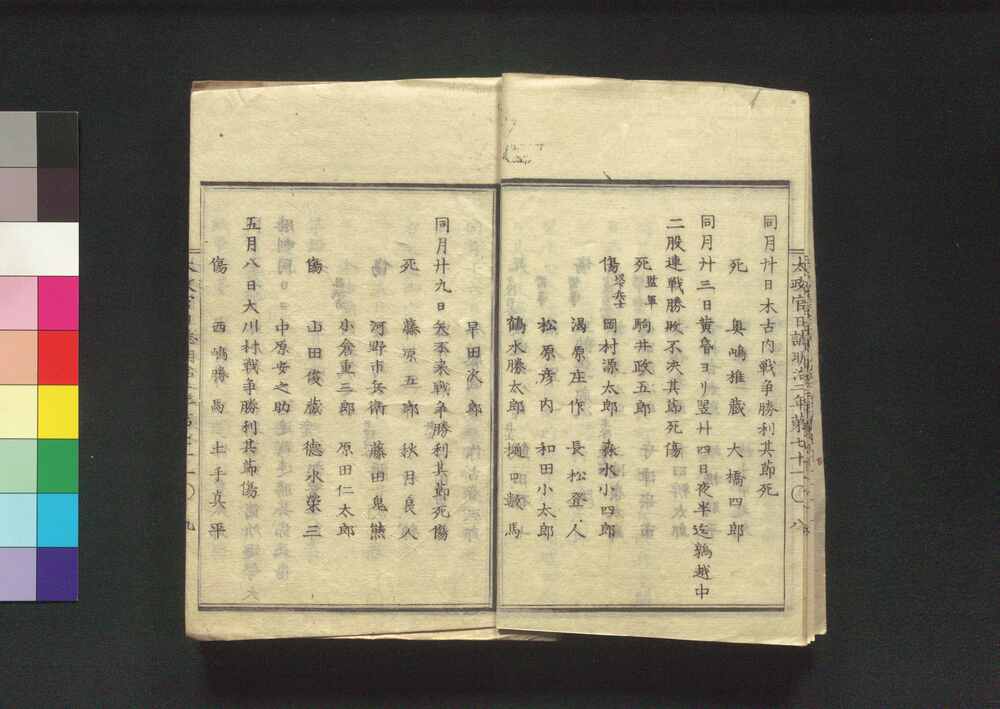 同月廿日木古内戦争勝利其節死
死 奥嶋雄蔵 大橋四郎
同月廿三日黄昏ヨリ翌廿四日夜半迄鶉越中
二股連戦勝敗不决其節死傷
死 監軍 駒井政五郎
傷 岡村源太郎 森水小四郎
湯原庄作 長松登人
松原彦内 和田小太郎
鶴水勝太郎 樋口数馬
早田次郎
同月廿九日矢不来戦争勝利其節死傷
死 藤原五郎 秋月良人
河野市兵衛 藤田鬼熊
小倉重三郎 原田仁太郎
傷 山田俊蔵 徳永榮三
中原安之助
五月八日大川村戦争勝利其節傷
傷 西嶋勝馬 土手真平